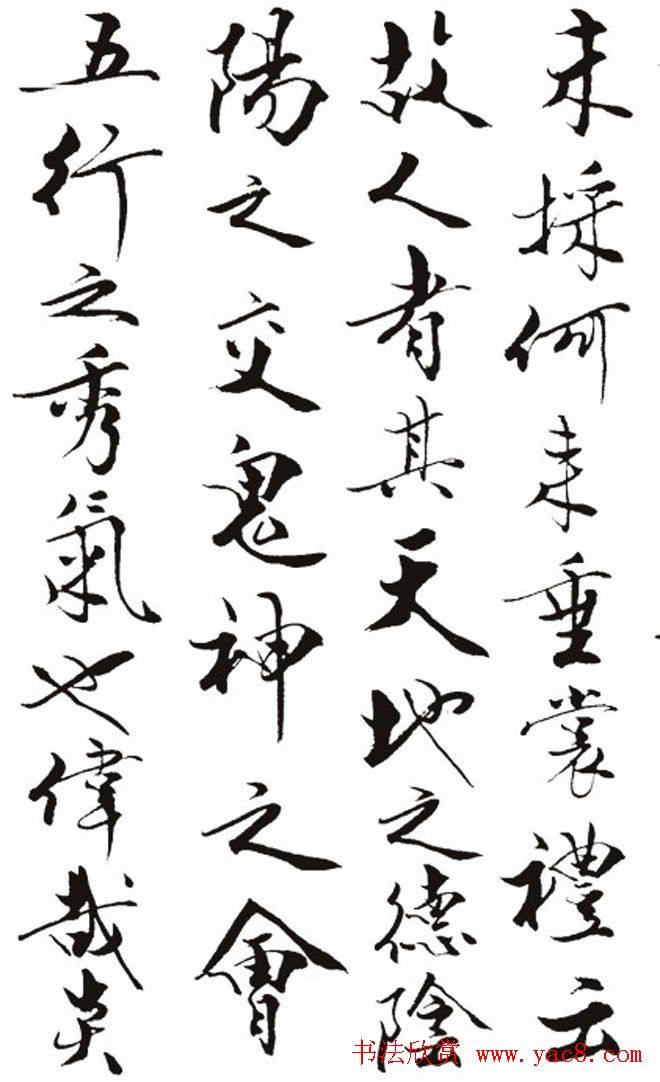 未採何耒垂裳禮云
故人者其天地之德陰
陽之交鬼神之會
五行之秀氣也偉哉炎
书法欣赏 www.yac8.com